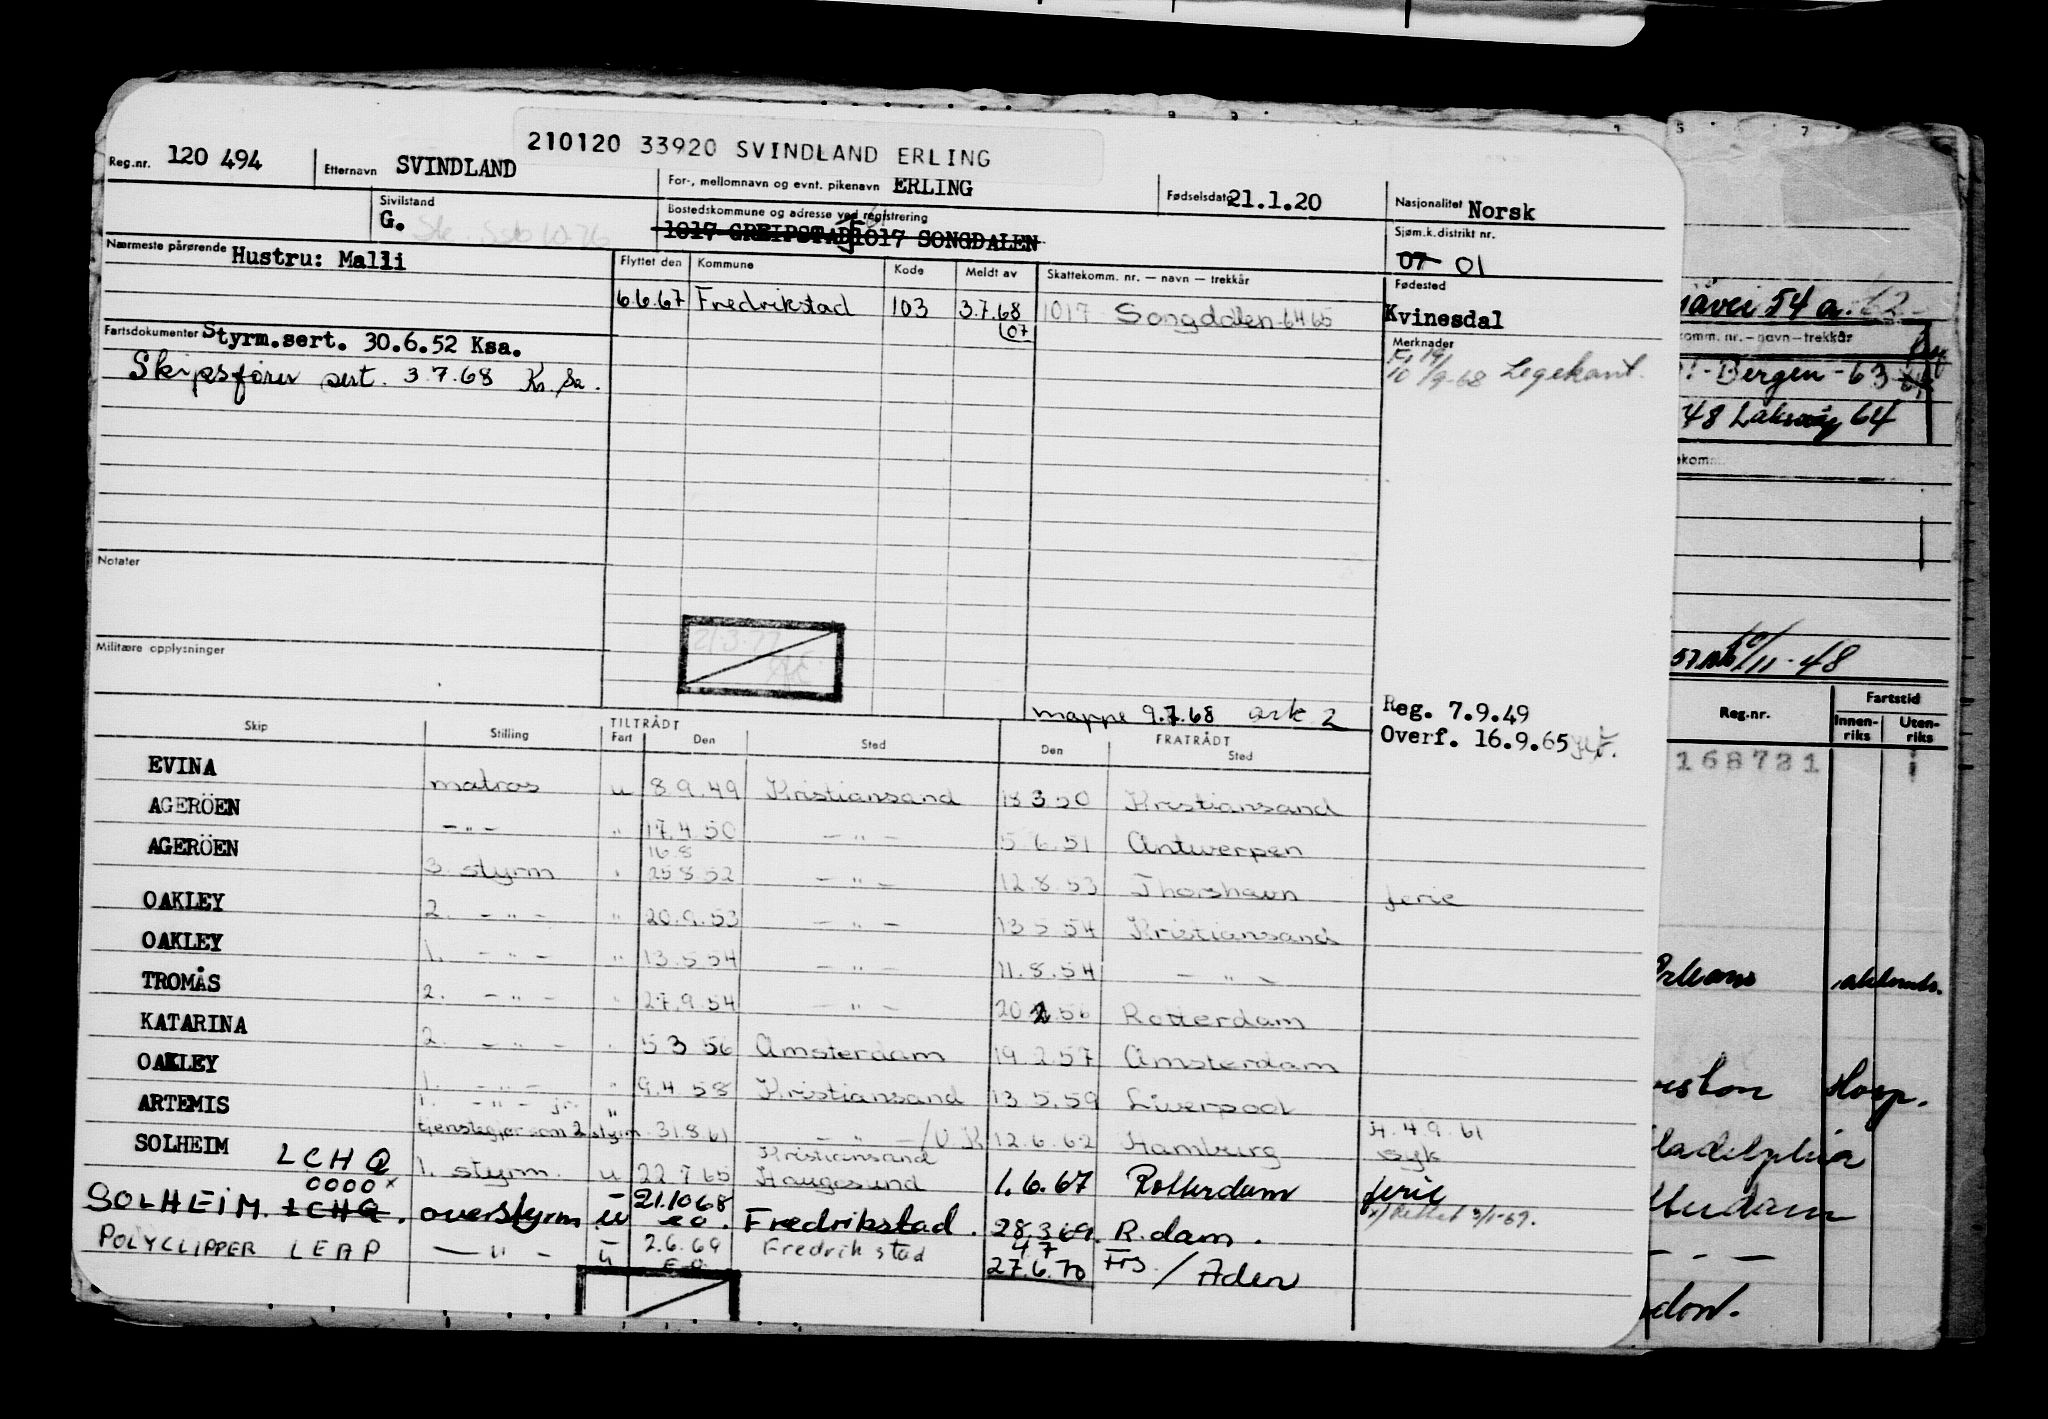 210120 33920 SVINDLAND ERLING
Reg.nr. 120 494 Etternavn SVINDLAND For-, mellomnavn og evnt. pikenavn ERLING Fødselsdato 21.1.20 Nasjonalitet Norsk
Sivilstand G. Bostedskommune og adresse ved registrering Sjøm.k.distrikt nr.
1017 GREIPSTAD 1017 SONGDALEN 07 01
Nærmeste pårørende Hustru: Malli
Flyttet den Kommune Kode Meldt av Skattekomm. nr. — navn — trekkår Fødested
6.6.67 Fredrikstad 103 3.7.68 1017 Songdalen 64 65 Kvinesdal
07
Fartsdokumenter Styrm.sert. 30.6.52 Ksa. Merknader
Skipsfører sert. 3.7.68 Kr. Sa. Legekont.
Notater
21.3.77
Militære opplysninger
mappe 9.7.68 ark 2 Reg. 7.9.49
Overf. 16.9.65
Skip Stilling TILTRÅDT Fart Den Sted FRATRÅDT Den Sted
EVINA matros u 8 9.49 Kristiansand 18 3 50 Kristiansand
AGERÖEN — " — " 17.4 50 — " — 5.6.51 Antwerpen
16.8
AGERÖEN 3. styrm " 25 8 52 — " — 12.8.53 Thorshavn ferie
OAKLEY 2. — " — " 20.9.53 — " — 13 5 54 Kristiansand
OAKLEY 1. — " — " 13.5.54 — " — 11.8.54 — " —
TROMÅS 2. — " — " 27.9.54 — " — 20 2 56 Rotterdam
KATARINA 2. — " — " 5 3 56 Amsterdam 19.2.57 Amsterdam
OAKLEY 1. — " — " 9.4 58 Kristiansand 13 5.59 Liverpool
ARTEMIS 1. — " — jr. "
tjenestegjør som 2 styrm 31.8.61 — " — /U.K 12.6.62 Hamburg 4.9.61
syk
Kristiansand
SOLHEIM LCHQ 1. styrm. u 22 7 65 Haugesund 1.6.67 Rotterdam ferie
0000 x 21.10 68
SOLHEIM. LCHQ. overstyrm u eö. Fredrikstad. 28.3 69. R.dam. x) Rettet 3/1-69.
POLYCLIPPER LEAP — " — u 2.6.69 Fredrikstad 4.7
eö 27.6.70 Frs / Aden
54 a.
komm. nr.—navn—trekkår
Bergen - 63
48 Laksevåg 64
ekomm.
11-48
Reg.nr. Fartstid
Innen-riks Uten-riks
168721
Orleans
Hosp.